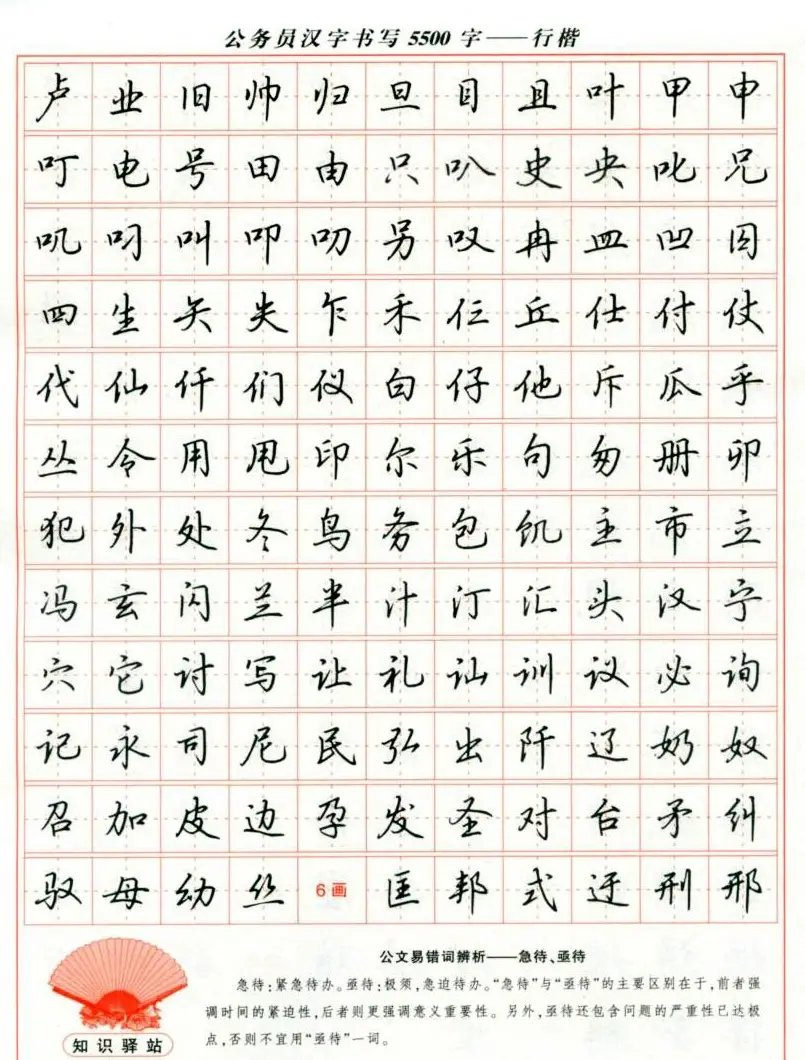 公务员汉字书写5500字——行楷
卢业旧帅归旦目且叶甲申
叮电号田由只叭史央叱兄
叽叼叫叩叨另叹冉皿凹囚
四生矢失乍禾仨丘仕付仗
代仙仟们仪白仔他斥瓜乎
丛令用甩印尔乐句匆册卯
犯外处冬鸟务包饥主市立
冯玄闪兰半汁汀汇头汉宁
穴它讨写让礼讪训议必询
记永司尼民弘出阡辽奶奴
召加皮边孕发圣对台矛纠
驭母幼丝6画匡邦式迂刑邢
公文易错词辨析——急待、亟待
急待:紧急待办。亟待:极须,急迫待办。“急待”与“亟待”的主要区别在于,前者强
调时间的紧迫性,后者则更强调意义重要性。另外,亟待还包含问题的严重性已达极
点,否则不宜用“亟待”一词。
知识驿站